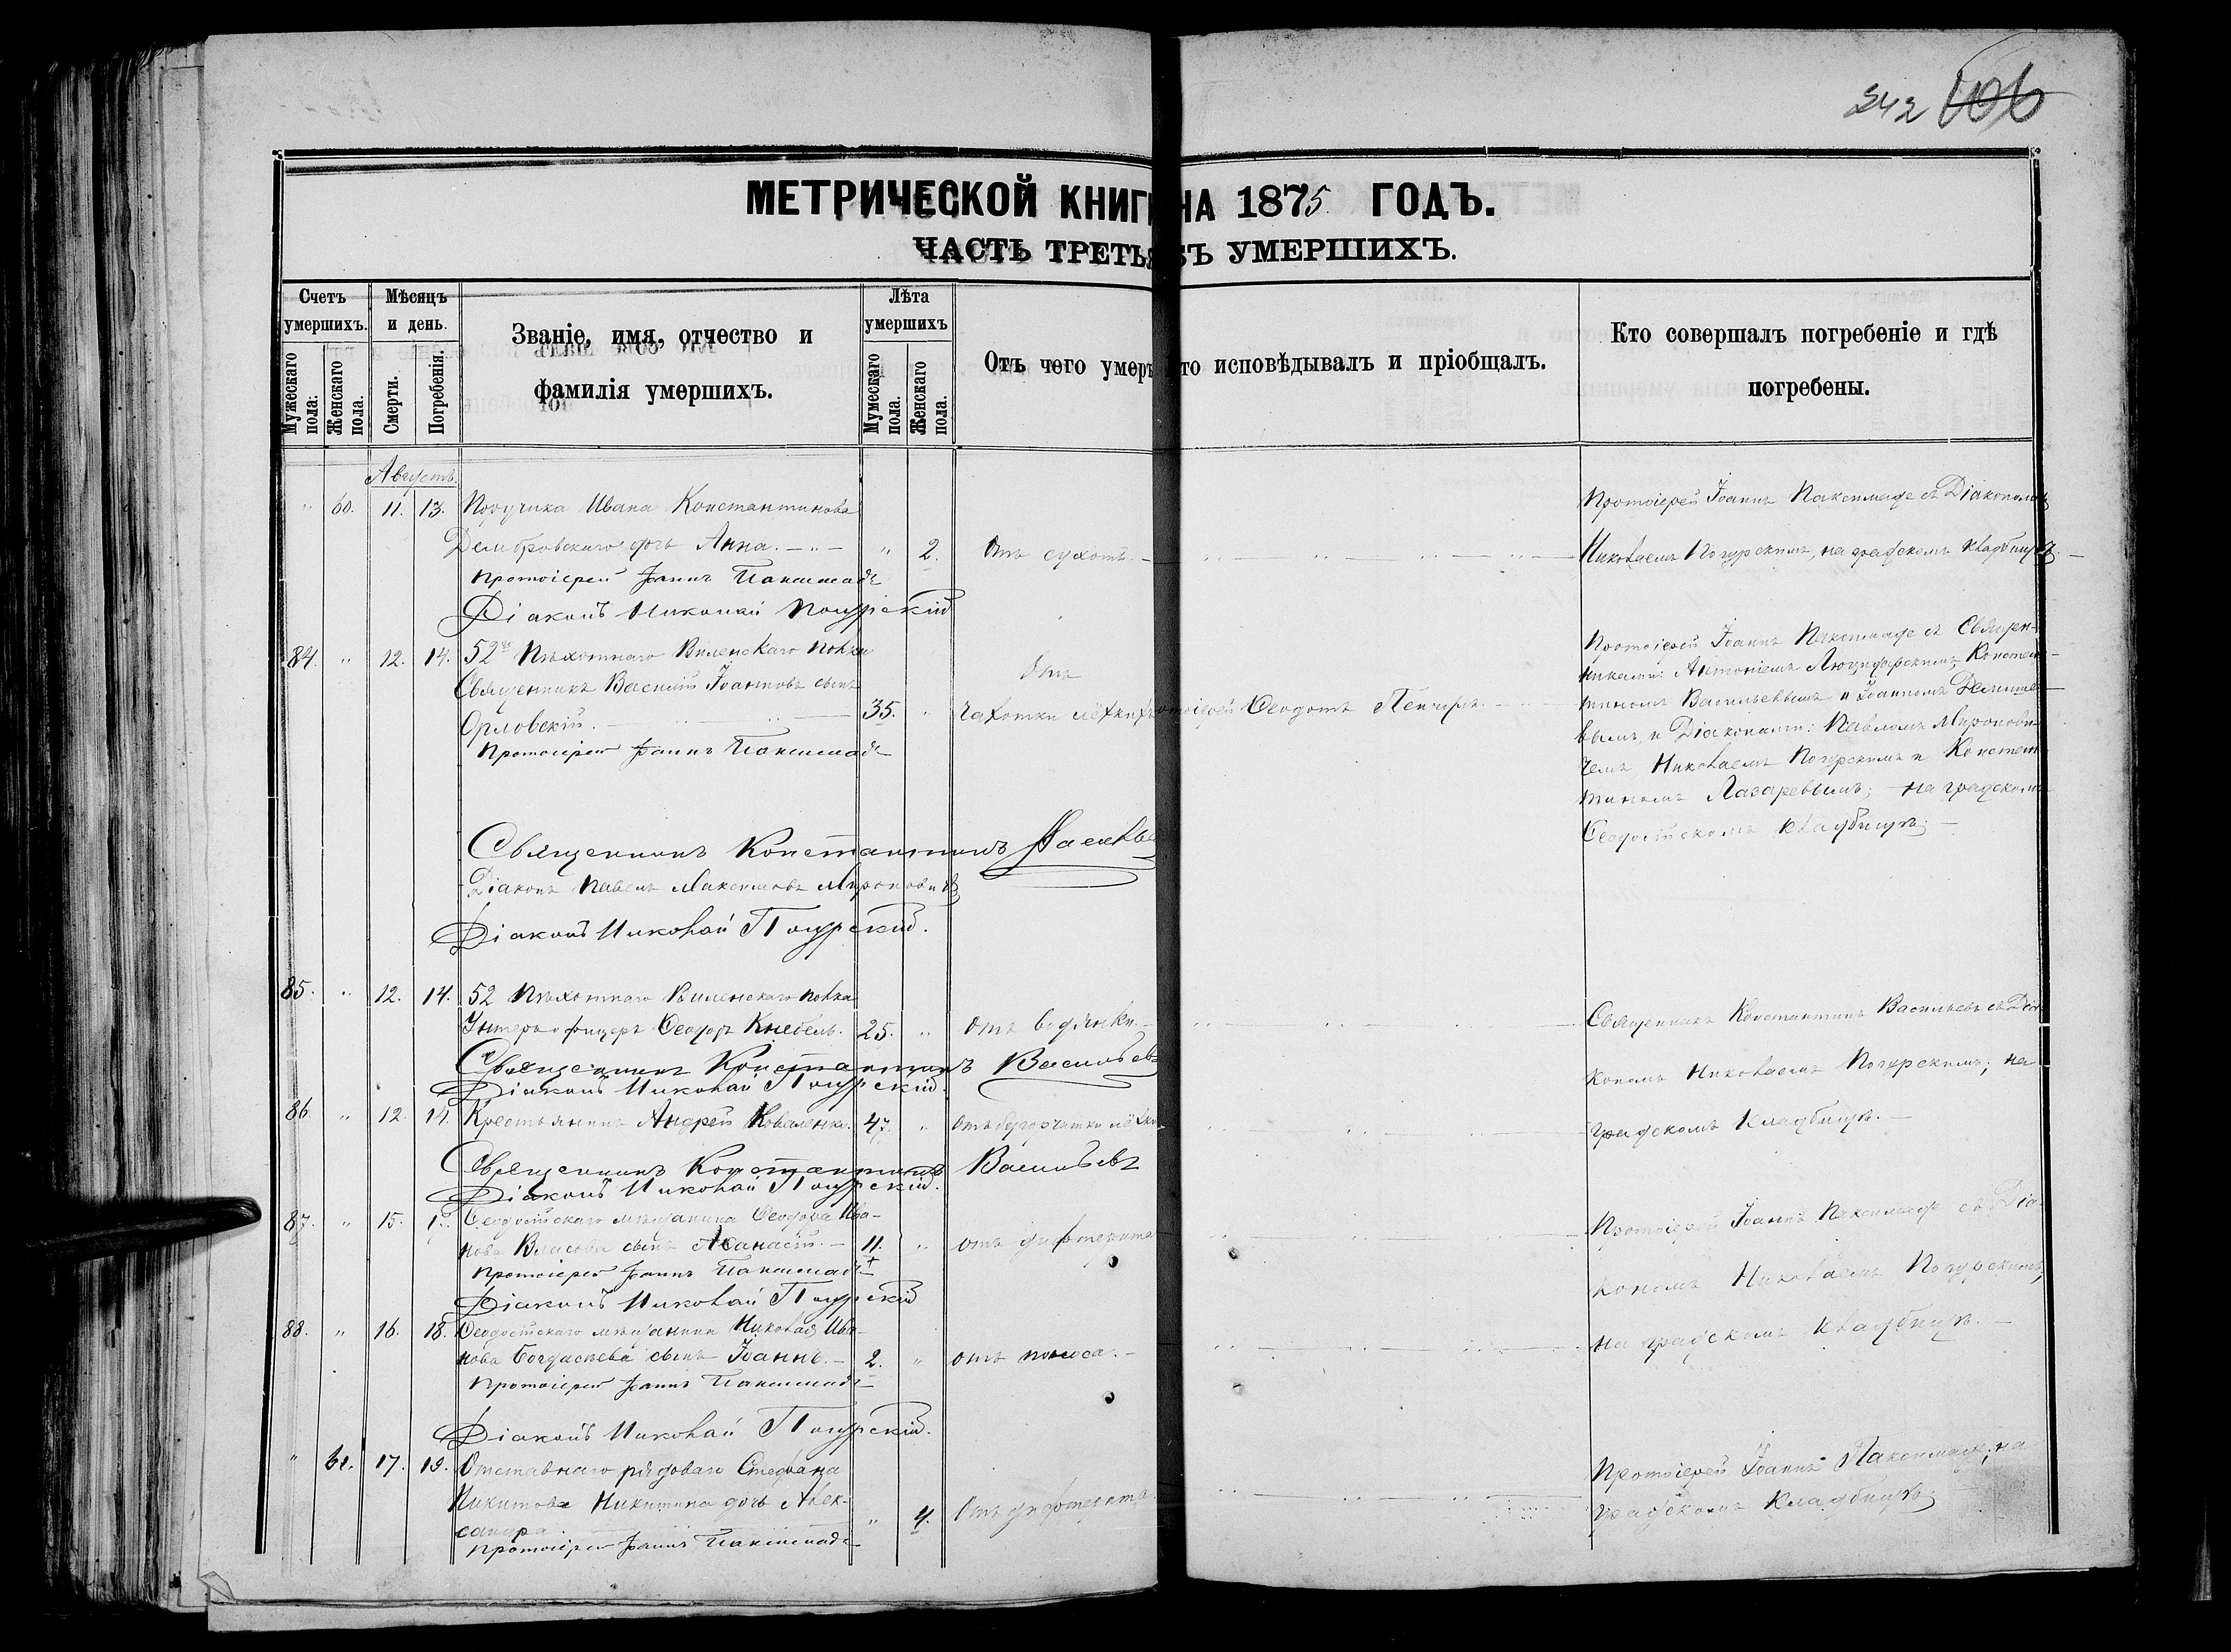 242 106
МЕТРИЧЕСКОЙ КНИГИ НА 1875 ГОДЪ.
ЧАСТЬ ТРЕТЬЯ УМЕРШИХЪ.
Счетъ умершихъ.
Мужескаго пола.
Женскаго пола.
Мѣсяцъ и день.
Смерти.
Погребенія.
Званіе, имя, отчество и
фамилія умершихъ.
Лѣта умершихъ
Мужескаго пола.
Женскаго пола.
Отъ чего умеръ то исповѣдывалъ и пріобщалъ.
Кто совершалъ погребеніе и гдѣ
погребены.
Августъ.
" 60. 11. 13. Поручика Ивана Константинова
Домбровскаго дочь Анна. " 2. Отъ сухотъ.
Протоіерей Іоаннъ Паксимаде
Діаконъ Николай Погурскій
Протоіерей Іоаннъ Паксимаде съ Діакономъ
Николаемъ Погурскимъ, на градскомъ кладбищѣ.
84. " 12. 14. 52го Пѣхотнаго Виленскаго полка
Священникъ Василій Іоанновъ сынъ
Орловскій. 35. " Отъ
чахотки лёгкихъ Протоіерей Ѳеодотъ
Протоіерей Іоаннъ Паксимаде
Протоіерей Іоаннъ Паксимаде съ Священ-
никами: Антоніемъ Константи-
номъ Васильевымъ и Іоанномъ
вымъ, и Діаконами: Павломъ Миронови-
чемъ, Николаемъ Погурскимъ и Констан-
тиномъ Лазаревымъ; на градскомъ
Ѳеодосійскомъ кладбищѣ.
Священникъ Константинъ Васильевъ
Діаконъ Павелъ Максимовъ Мироновичъ
Діаконъ Николай Погурскій.
85. " 12. 14. 52 Пѣхотнаго Виленскаго полка
Унтеръ офицеръ Ѳеодоръ Кнебель. 25. " Отъ водянки.
Священникъ Константинъ Васильевъ
Діаконъ Николай Погурскій.
Священникъ Константинъ Васильевъ съ Діа-
кономъ Николаемъ Погурскимъ; на
градскомъ кладбищѣ.
86. " 12. 14. Крестьянинъ Андрей Коваленко. 47. " отъ бугорчатки лёгкихъ
Священникъ Константинъ Васильевъ
Діаконъ Николай Погурскій.
87. " 15. Ѳеодосійскаго мѣщанина Ѳеодора Ива-
нова Власова сынъ Аѳанасій. 11. " отъ дифтерита
Протоіерей Іоаннъ Паксимаде
Діаконъ Николай Погурскій
Протоіерей Іоаннъ Паксимаде съ Діа-
кономъ Николаемъ Погурскимъ,
на градскомъ кладбищѣ.
88. " 16. 18. Ѳеодосійскаго мѣщанина Николая Ива-
нова сынъ Іоаннъ. 2. " отъ поноса.
Протоіерей Іоаннъ Паксимаде
Діаконъ Николай Погурскій.
" 61. 17. 19. Отставнаго рядоваго Стефана
Никитова Никитина дочь Алек-
сандра. " 4. Отъ дифтерита.
Протоіерей Іоаннъ Паксимаде
Протоіерей Іоаннъ Паксимаде, на
градскомъ кладбищѣ.